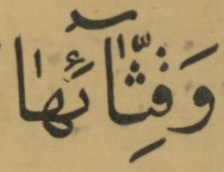 وَقِثَّآئِهَا